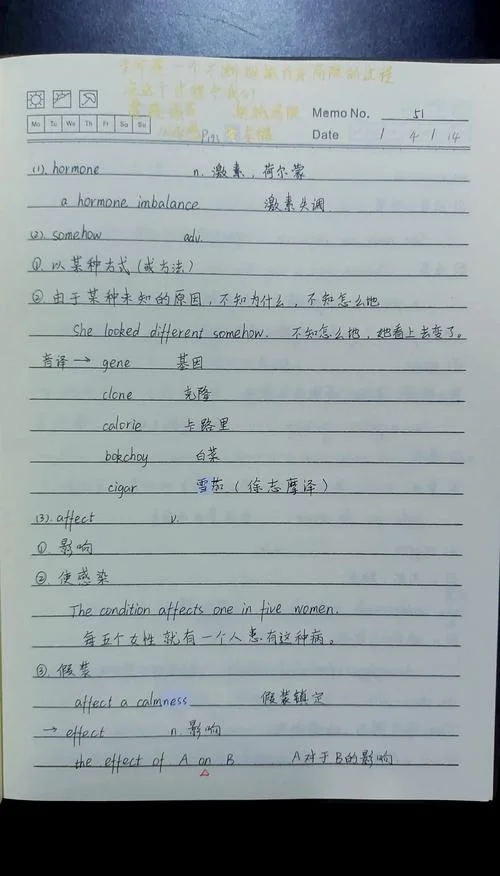 生命是一个不断超越自身局限的过程
在这个过程中我们
Memo No. 51
Mo Tu We Th Fr Sa Su
Date 1 / 4 / 14
(1). hormone n. 激素，荷尔蒙
a hormone imbalance 激素失调
(2). somehow adv.
① 以某种方式（或方法）
② 由于某种未知的原因，不知为什么，不知怎么地
She looked different somehow. 不知怎么地，她看上去变了。
音译 → gene 基因
clone 克隆
calorie 卡路里
bokchoy 白菜
cigar 雪茄（徐志摩译）
(3). affect v.
① 影响
② 使感染
The condition affects one in five women.
每五个女性就有一个人患有这种病。
③ 假装
affect a calmness 假装镇定
→ effect n. 影响
the effect of A on B A对于B的影响